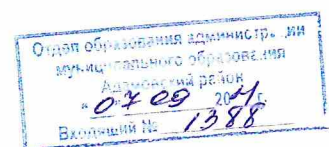 Отдел образования администрации
муниципального образования
Адамовский район
" 07 09 20 г.
Входящий № 1388